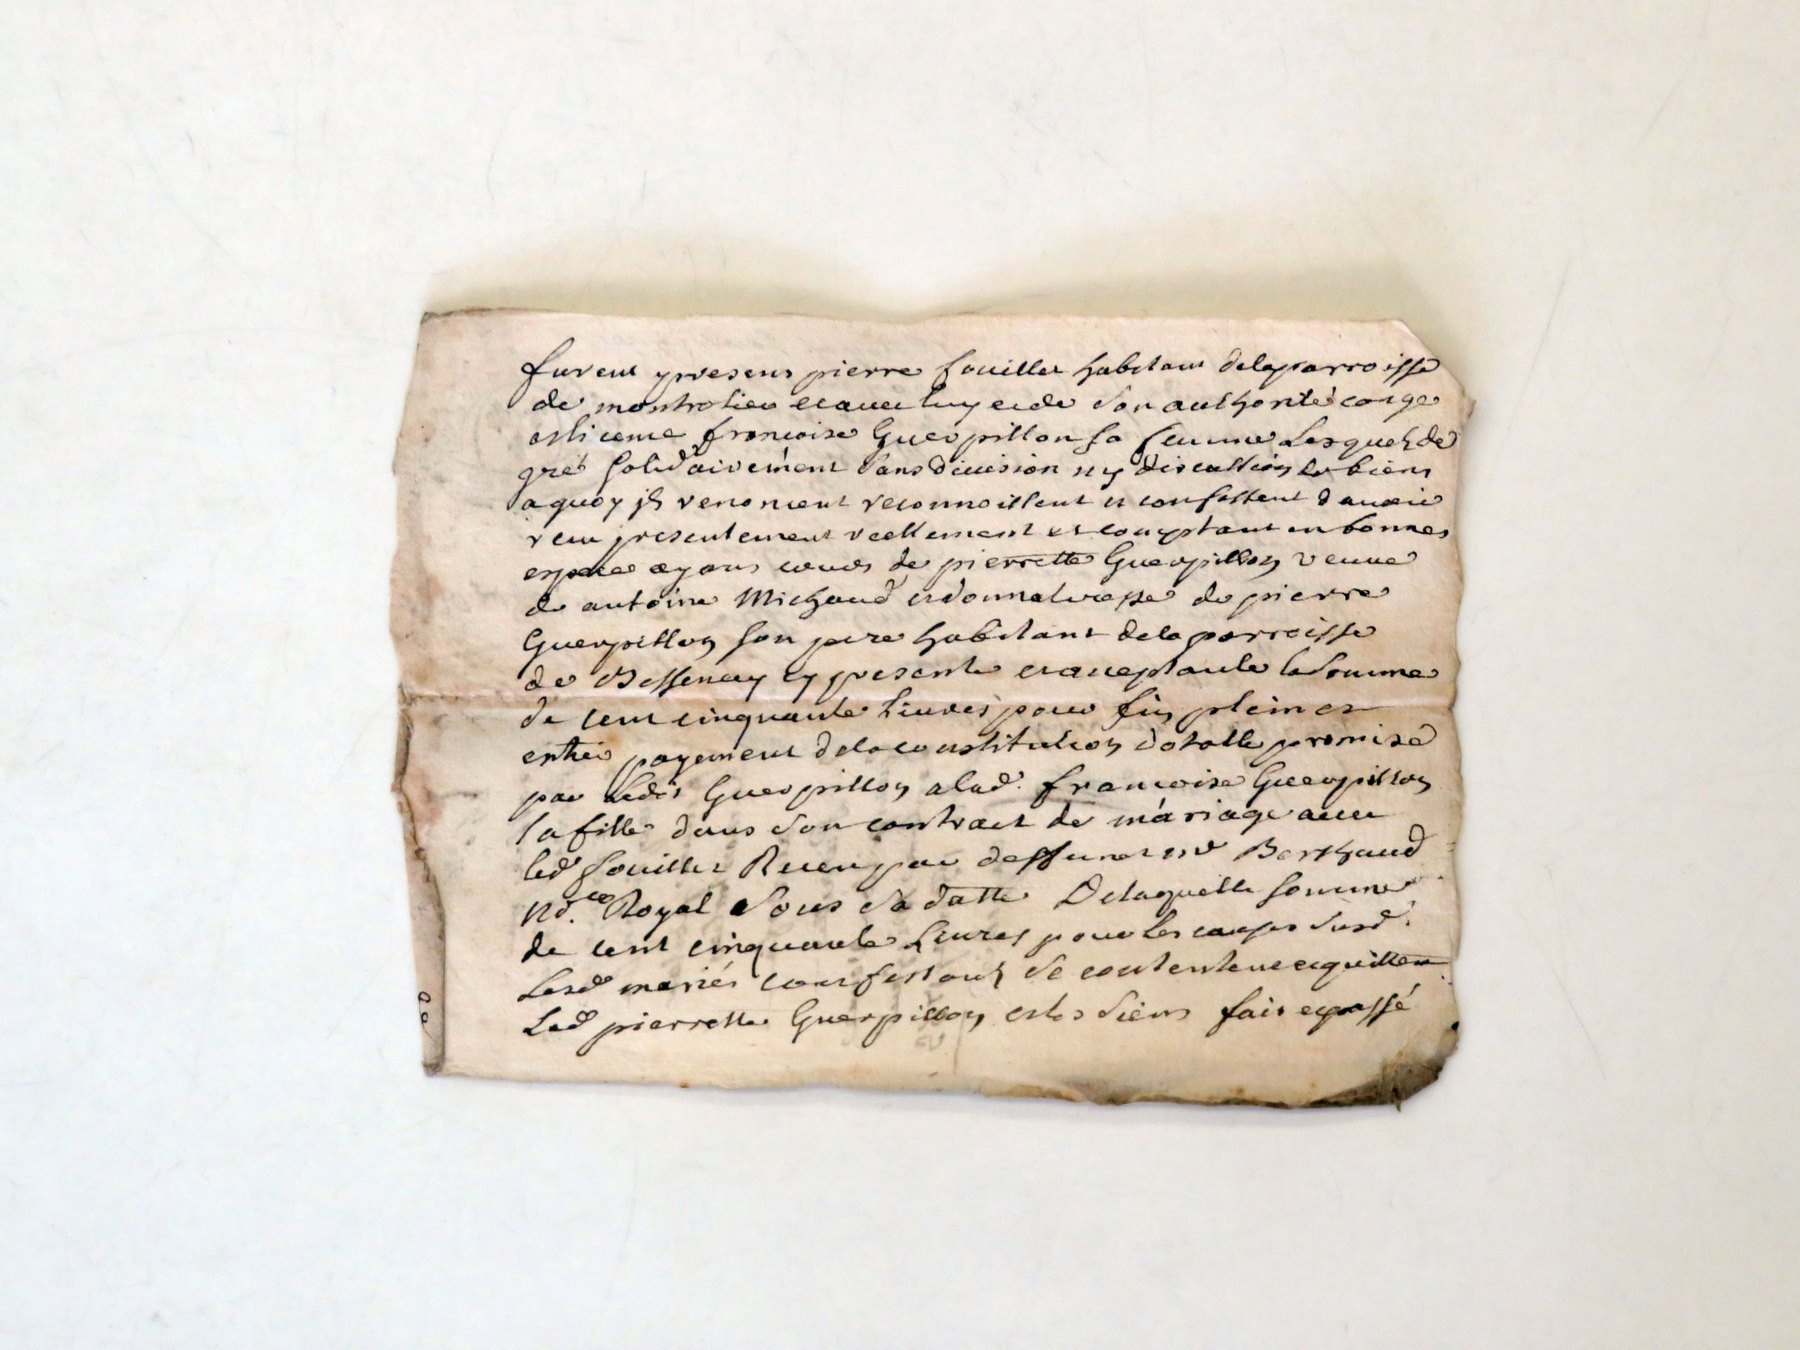 furent presens pierre fouillet habitant de la parroisse
de montrotier et avec luy et de son authorité conge
et licence francoise Guerpillon sa femme Lesquels de
gré solidairement sans division ny discution de biens
a quoy ils renoncent reconnoissent et confessent d'avoir
receu presentement reellement et comptant en bonnes
espece ayans cours de pierrette Guerpillon veuve
de antoine Michaud et donnateresse de pierre
Guerpillon son pere habitant de la parroisse
de Bessenay cy presente et acceptante la somme
de cent cinquante livres pour fin pleine et
entier payement de la constitution dotalle promise
par ledit Guerpillon a lad. francoise Guerpillon
sa fille dans son contract de mariage avec
led fouillet Receu par deffunct me Berthaud
No.re Royal sous sa datte De laquelle somme
de cent cinquante Livres pour les causes susd.
Lesd mariés confessants se contentent et quittent
Lad pierrette Guerpillon et les siens fait et passé